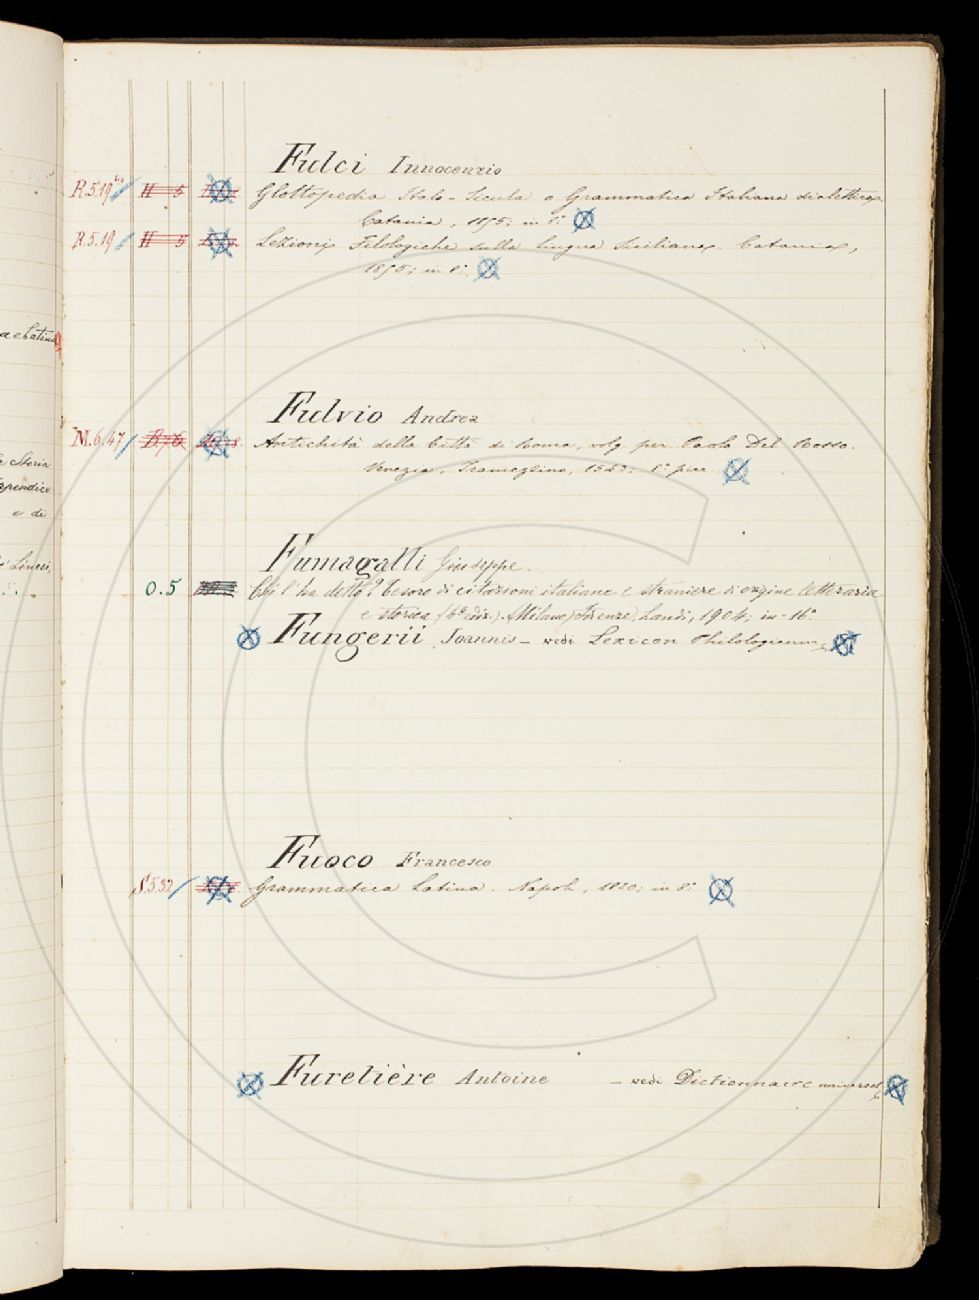 Fulci Innocenzio
R.5.19 bis H 5 Glottopedia Italo-Sicula o Grammatica Italiana dialettica
Catania, 1855; in 8.°
R.5.19 H 5 Lezioni Filologiche sulla lingua Siciliana. Catania,
1855; in 8.°
Fulvio Andrea
M.6.47 Antichità della Città di Roma, volg. per Paolo Del Rosso.
Venezia, Tramezzino, 1543;
Fumagalli Giuseppe.
O.5 Chi l'ha detto? Tesoro di citazioni italiane e straniere di origine letteraria
e storica (4a ediz.). (Milano) Firenze, Landi, 1904; in-16°
Fungerii Joannis - vedi Lexicon Philologicum
Fuoco Francesco
S.5.32 Grammatica Latina. Napoli, 1820; in 8.°
Furetière Antoine - vedi Dictionnaire universel
a e Latina
la Storia
Appendice
e di
Lincei,